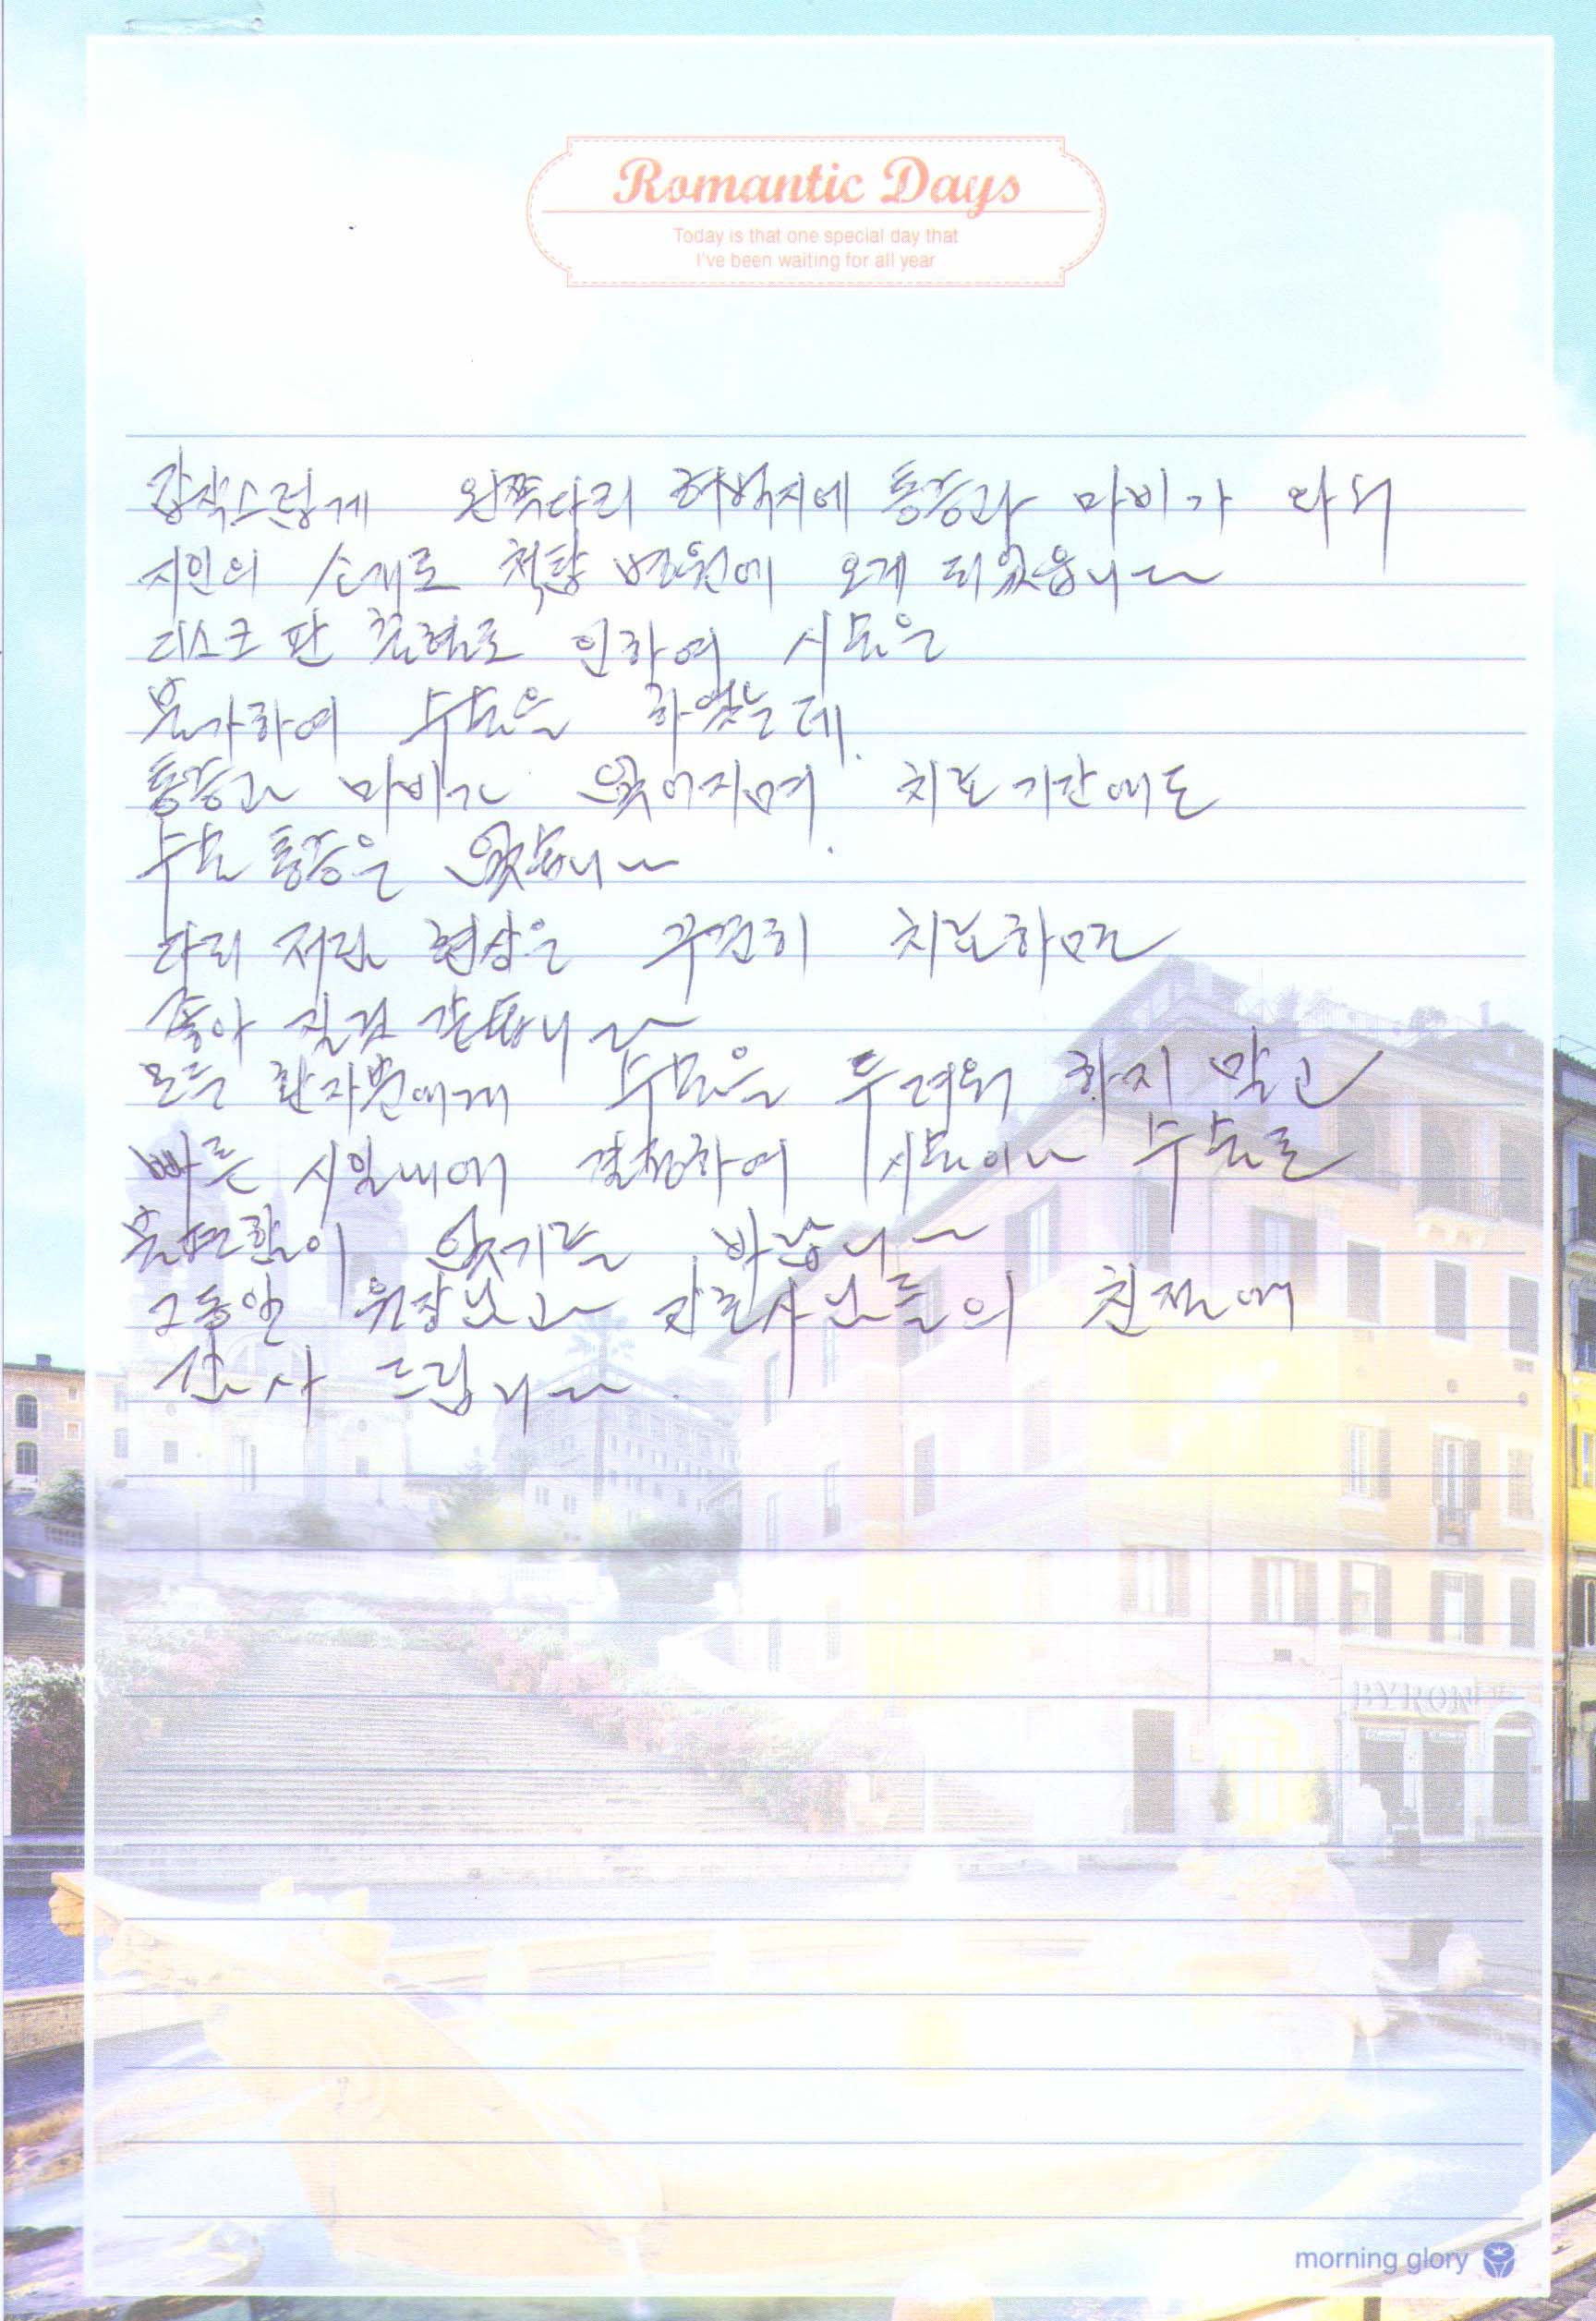 Romantic Days
Today is that one special day that
I've been waiting for all year
갑작스렇게 왼쪽다리 허벅지에 통증과 마비가 와서
지인의 소개로 척탑 병원에 오게 되었읍니다
디스크 판 돌출로 인하여 시술은
불가하여 수술을 하였는데.
통증과 마비가 없어지며 치료기간에도
수술 통증은 없습니다.
다리 저림 현상은 꾸준히 치료하면
좋아 질것 같습니다
모든 환자분에게 수술을 두려워 하지 말고
빠른 시일내에 결정하여 시술이나 수술로
불편함이 없기를 바랍니다
그동안 원장님과 간호사님들의 친절에
감사 드립니다.
morning glory